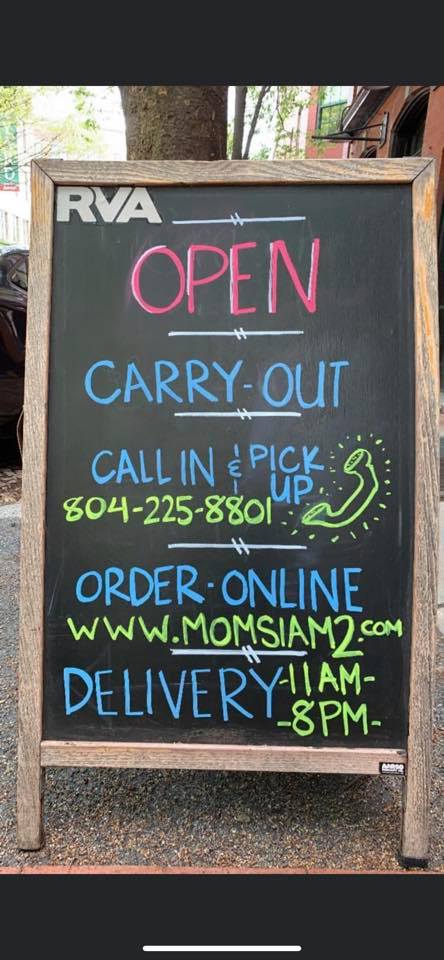 RVA
OPEN
CARRY-OUT
CALL IN & PICK UP
804-225-8801
ORDER-ONLINE
WWW.MOMSIAM2.COM
DELIVERY -11AM-
-8PM-